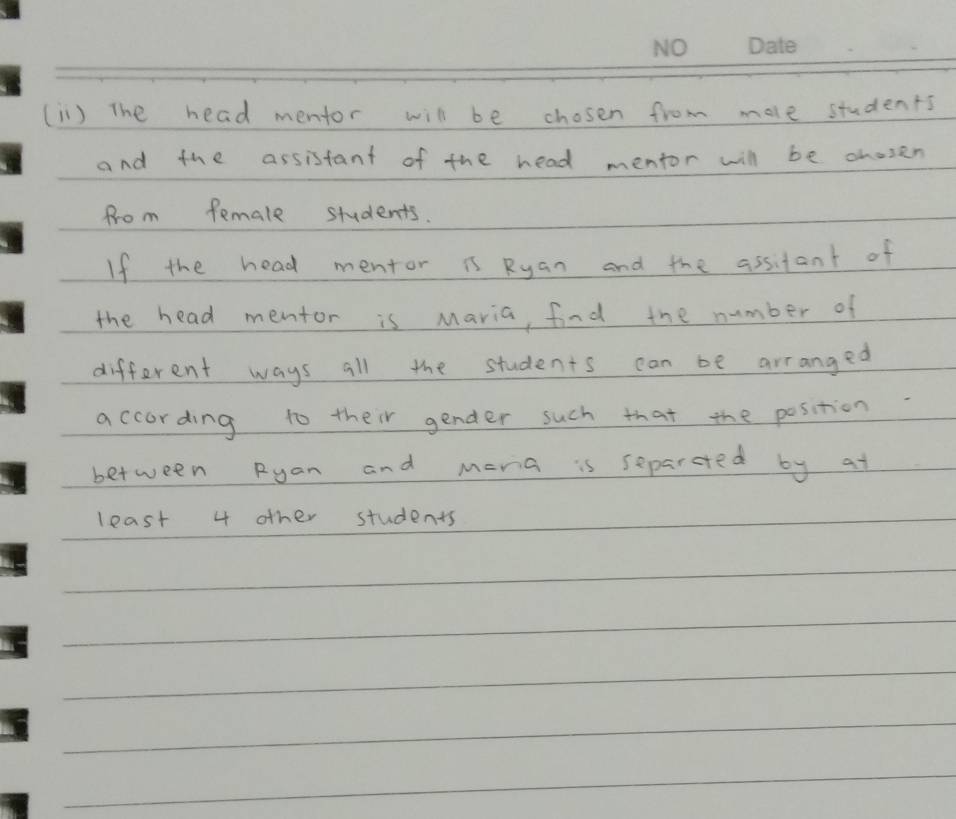 NO Date
(ii) The head mentor will be chosen from male students
and the assistant of the head mentor will be chosen
from female students.
If the head mentor is Ryan and the assitant of
the head mentor is Maria, find the number of
different ways all the students can be arranged
according to their gender such that the position
between Ryan and Maria is separated by at
least 4 other students